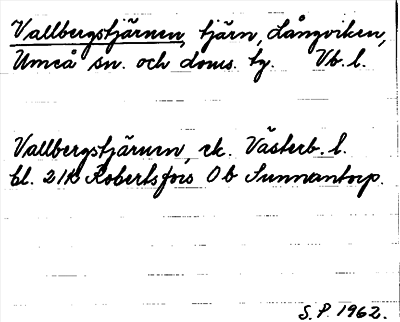 Vallbergstjärnen, tjärn, Långviken,
Umeå sn. och doms. tg. Vb. l.
Vallbergstjärnen, ek. Västerb. l.
bl. 21K Robertsfors 0b Sunnantorp.
S. P. 1962.